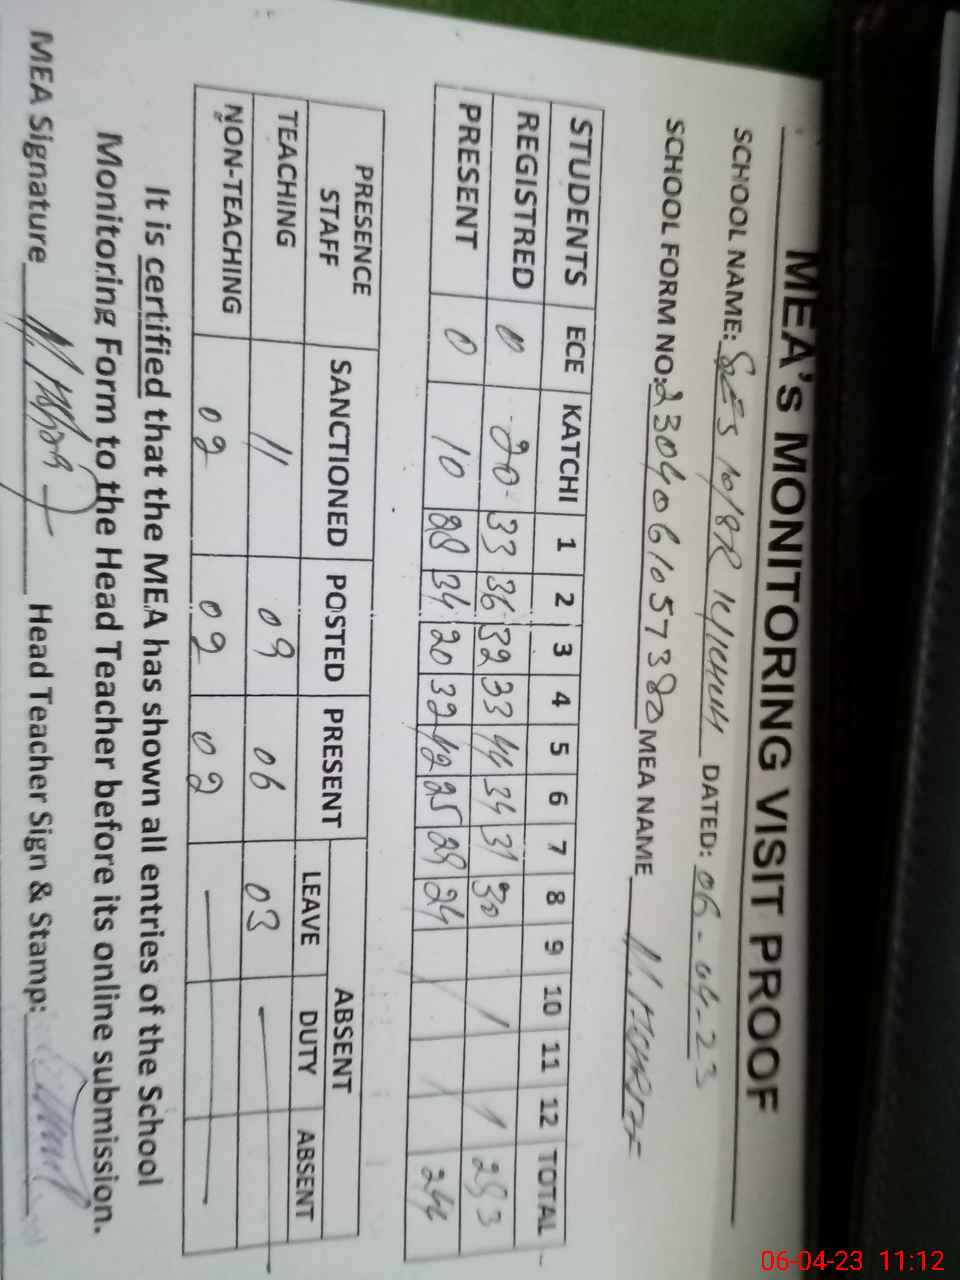 MEA's MONITORING VISIT PROOF
SCHOOL NAME: 10/8R DATED: 06-04-23
SCHOOL FORM NO: 23040610573 MEA NAME
STUDENTS ECE KATCHI 1 2 3 4 5 6 7 8 9 10 11 12 TOTAL
REGISTRED 0 20 33 36 32 33 44 34 31 30 293
PRESENT 0 10 28 34 20 32 42 25 29 24 244
PRESENCE STAFF SANCTIONED POSTED PRESENT ABSENT
LEAVE DUTY ABSENT
TEACHING 11 09 06 03 —
NON-TEACHING 02 02 02 —
It is certified that the MEA has shown all entries of the School
Monitoring Form to the Head Teacher before its online submission.
MEA Signature Head Teacher Sign & Stamp:
06-04-23 11:12